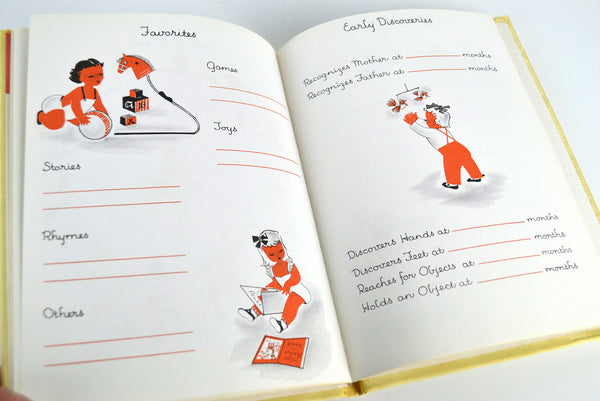 Favorites
Games
Toys
Stories
Rhymes
Others
Early Discoveries
Recognizes Mother at months
Recognizes Father at months
Discovers Hands at months
Discovers Feet at months
Reaches for Objects at months
Holds an Object at months